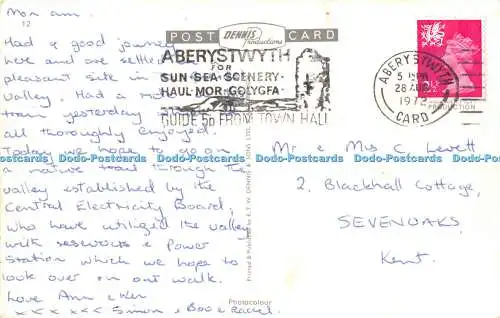 Mon am.
12
Had a good journey
here and are settled
pleasant site in
valley. Had a
train yesterday
all thoroughly enjoyed.
Today we hope to go on
a nature trail through the
valley established by the
Central Electricity Board,
who have utilized the valley
with reservoirs & Power
Station which we hope to
look over on our walk.
Love Ann & Ken
x x x x x Simon, & Rachel.
POST CARD
DENNIS
Productions
ABERYSTWYTH
FOR
SUN·SEA·SCENERY·
HAUL·MOR·GOLYGFA
GUIDE 5p FROM TOWN HALL
ABERYSTWYTH
5 PM
28 AUG
1973
CARD
PRODUCTION
Mr & Mrs C Levett
2, Blackhall Cottage,
SEVENOAKS,
Kent.
Photocolour
Dodo-Postcards Dodo-Postcards Dodo-Postcards Dodo-Postcards Dodo-Postcards